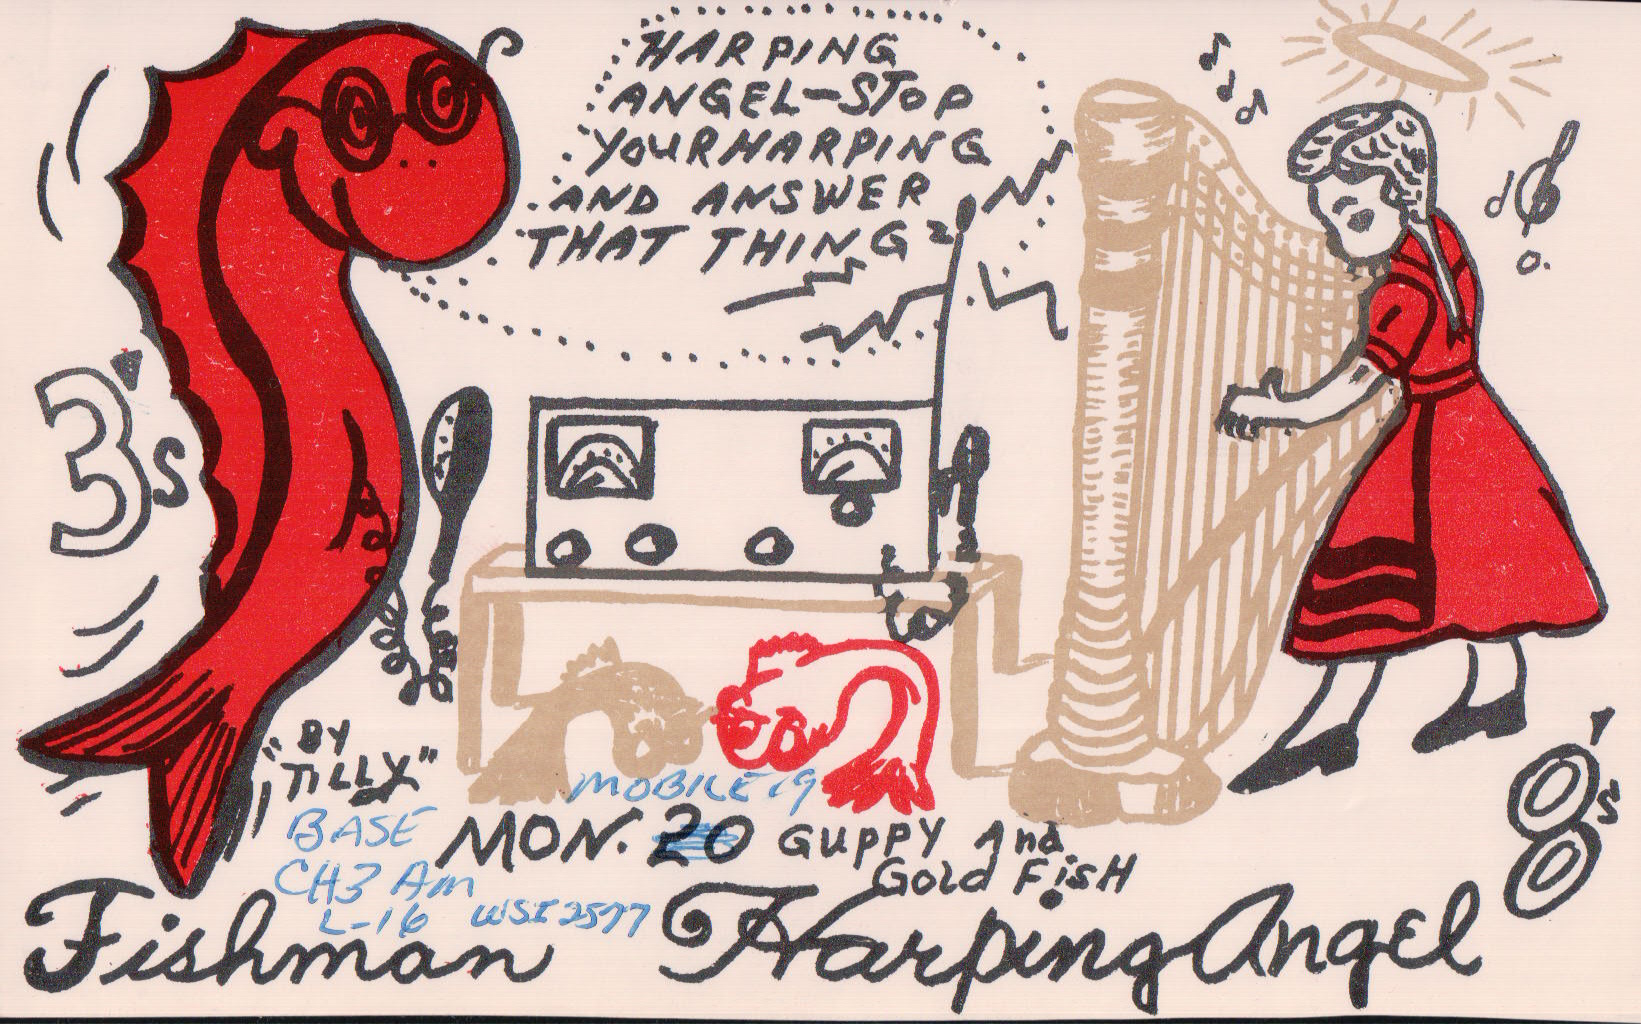 HARPING
ANGEL-STOP
YOUR HARPING
AND ANSWER
THAT THING?
3's
"BY
TILLY"
MOBILE 19
BASE
CH3 Am
L-16
WSI 2577
MON. 20
GUPPY And
Gold FisH
8's
Fishman
Harping Angel